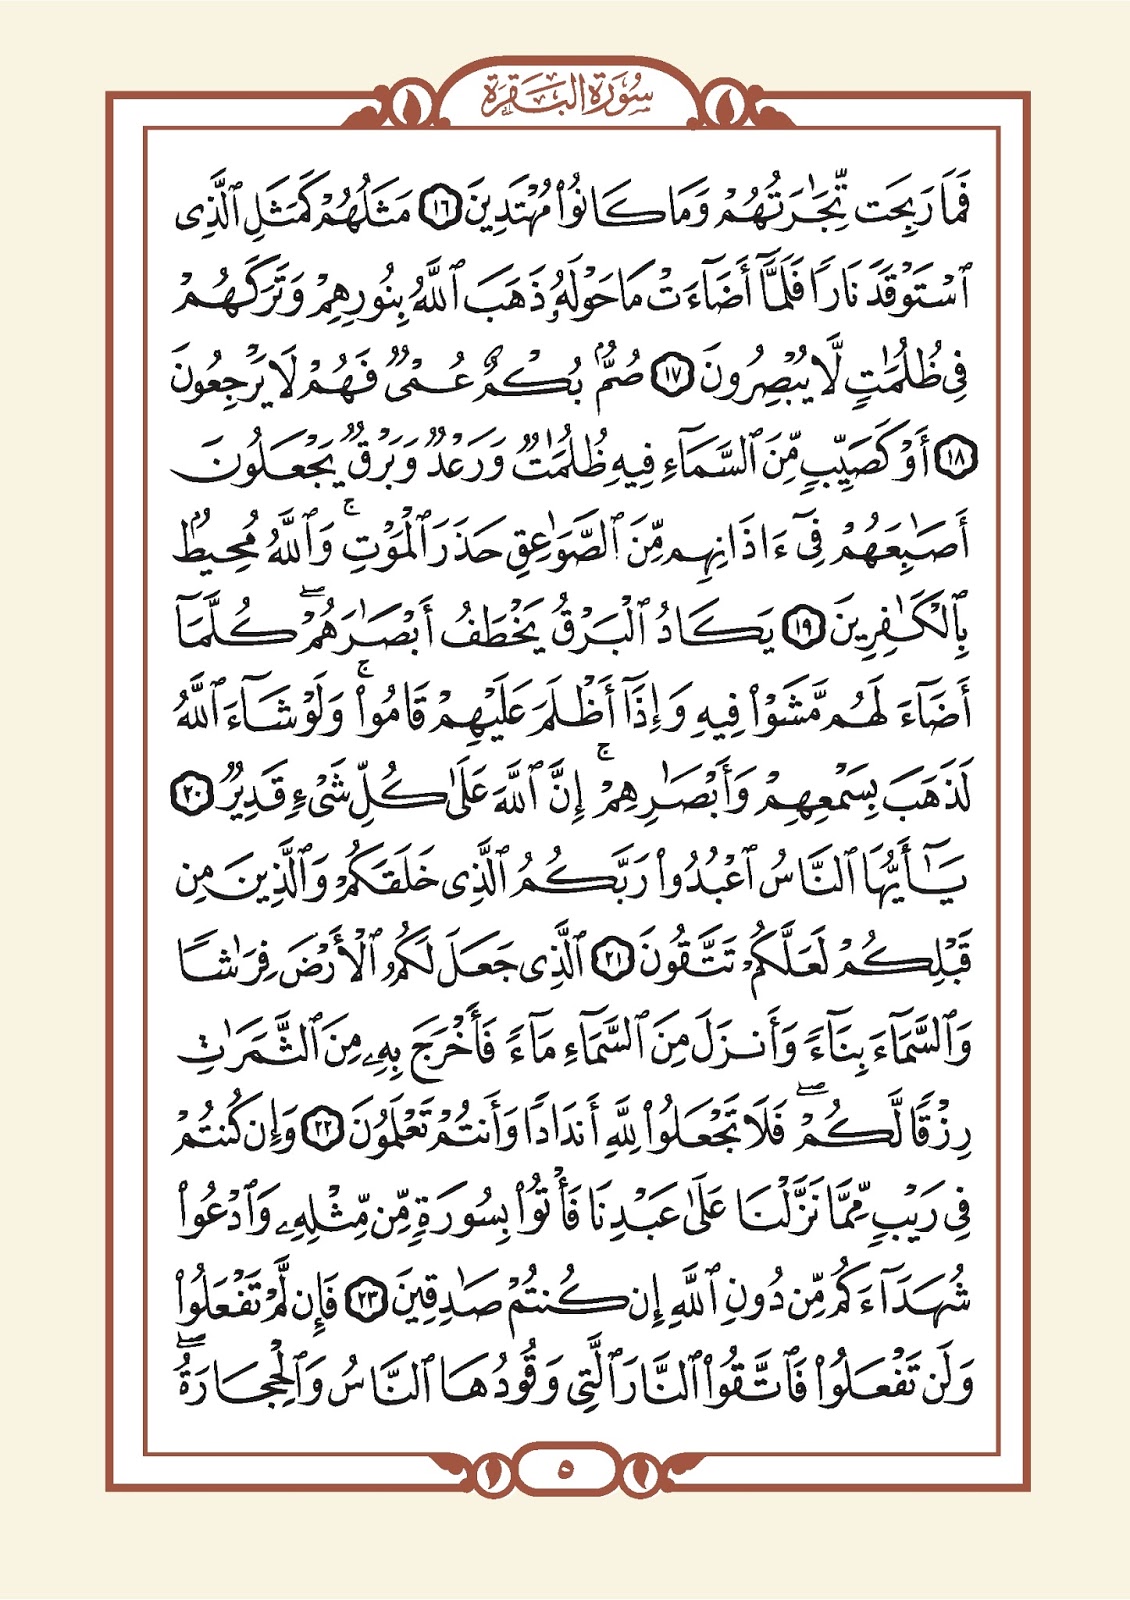 سُورَةُ البَقَرَة
فَمَا رَبِحَت تِّجَٰرَتُهُمْ وَمَا كَانُوا۟ مُهْتَدِينَ ١٦ مَثَلُهُمْ كَمَثَلِ ٱلَّذِى
ٱسْتَوْقَدَ نَارًا فَلَمَّآ أَضَآءَتْ مَا حَوْلَهُۥ ذَهَبَ ٱللَّهُ بِنُورِهِمْ وَتَرَكَهُمْ
فِى ظُلُمَٰتٍ لَّا يُبْصِرُونَ ١٧ صُمٌّۢ بُكْمٌ عُمْىٌ فَهُمْ لَا يَرْجِعُونَ
١٨ أَوْ كَصَيِّبٍ مِّنَ ٱلسَّمَآءِ فِيهِ ظُلُمَٰتٌ وَرَعْدٌ وَبَرْقٌ يَجْعَلُونَ
أَصَٰبِعَهُمْ فِىٓ ءَاذَانِهِم مِّنَ ٱلصَّوَٰعِقِ حَذَرَ ٱلْمَوْتِ ۚ وَٱللَّهُ مُحِيطٌۢ
بِٱلْكَٰفِرِينَ ١٩ يَكَادُ ٱلْبَرْقُ يَخْطَفُ أَبْصَٰرَهُمْ ۖ كُلَّمَآ
أَضَآءَ لَهُم مَّشَوْا۟ فِيهِ وَإِذَآ أَظْلَمَ عَلَيْهِمْ قَامُوا۟ ۚ وَلَوْ شَآءَ ٱللَّهُ
لَذَهَبَ بِسَمْعِهِمْ وَأَبْصَٰرِهِمْ ۚ إِنَّ ٱللَّهَ عَلَىٰ كُلِّ شَىْءٍ قَدِيرٌ ٢٠
يَٰٓأَيُّهَا ٱلنَّاسُ ٱعْبُدُوا۟ رَبَّكُمُ ٱلَّذِى خَلَقَكُمْ وَٱلَّذِينَ مِن
قَبْلِكُمْ لَعَلَّكُمْ تَتَّقُونَ ٢١ ٱلَّذِى جَعَلَ لَكُمُ ٱلْأَرْضَ فِرَٰشًا
وَٱلسَّمَآءَ بِنَآءً وَأَنزَلَ مِنَ ٱلسَّمَآءِ مَآءً فَأَخْرَجَ بِهِۦ مِنَ ٱلثَّمَرَٰتِ
رِزْقًا لَّكُمْ ۖ فَلَا تَجْعَلُوا۟ لِلَّهِ أَندَادًا وَأَنتُمْ تَعْلَمُونَ ٢٢ وَإِن كُنتُمْ
فِى رَيْبٍ مِّمَّا نَزَّلْنَا عَلَىٰ عَبْدِنَا فَأْتُوا۟ بِسُورَةٍ مِّن مِّثْلِهِۦ وَٱدْعُوا۟
شُهَدَآءَكُم مِّن دُونِ ٱللَّهِ إِن كُنتُمْ صَٰدِقِينَ ٢٣ فَإِن لَّمْ تَفْعَلُوا۟
وَلَن تَفْعَلُوا۟ فَٱتَّقُوا۟ ٱلنَّارَ ٱلَّتِى وَقُودُهَا ٱلنَّاسُ وَٱلْحِجَارَةُ ۖ
٥